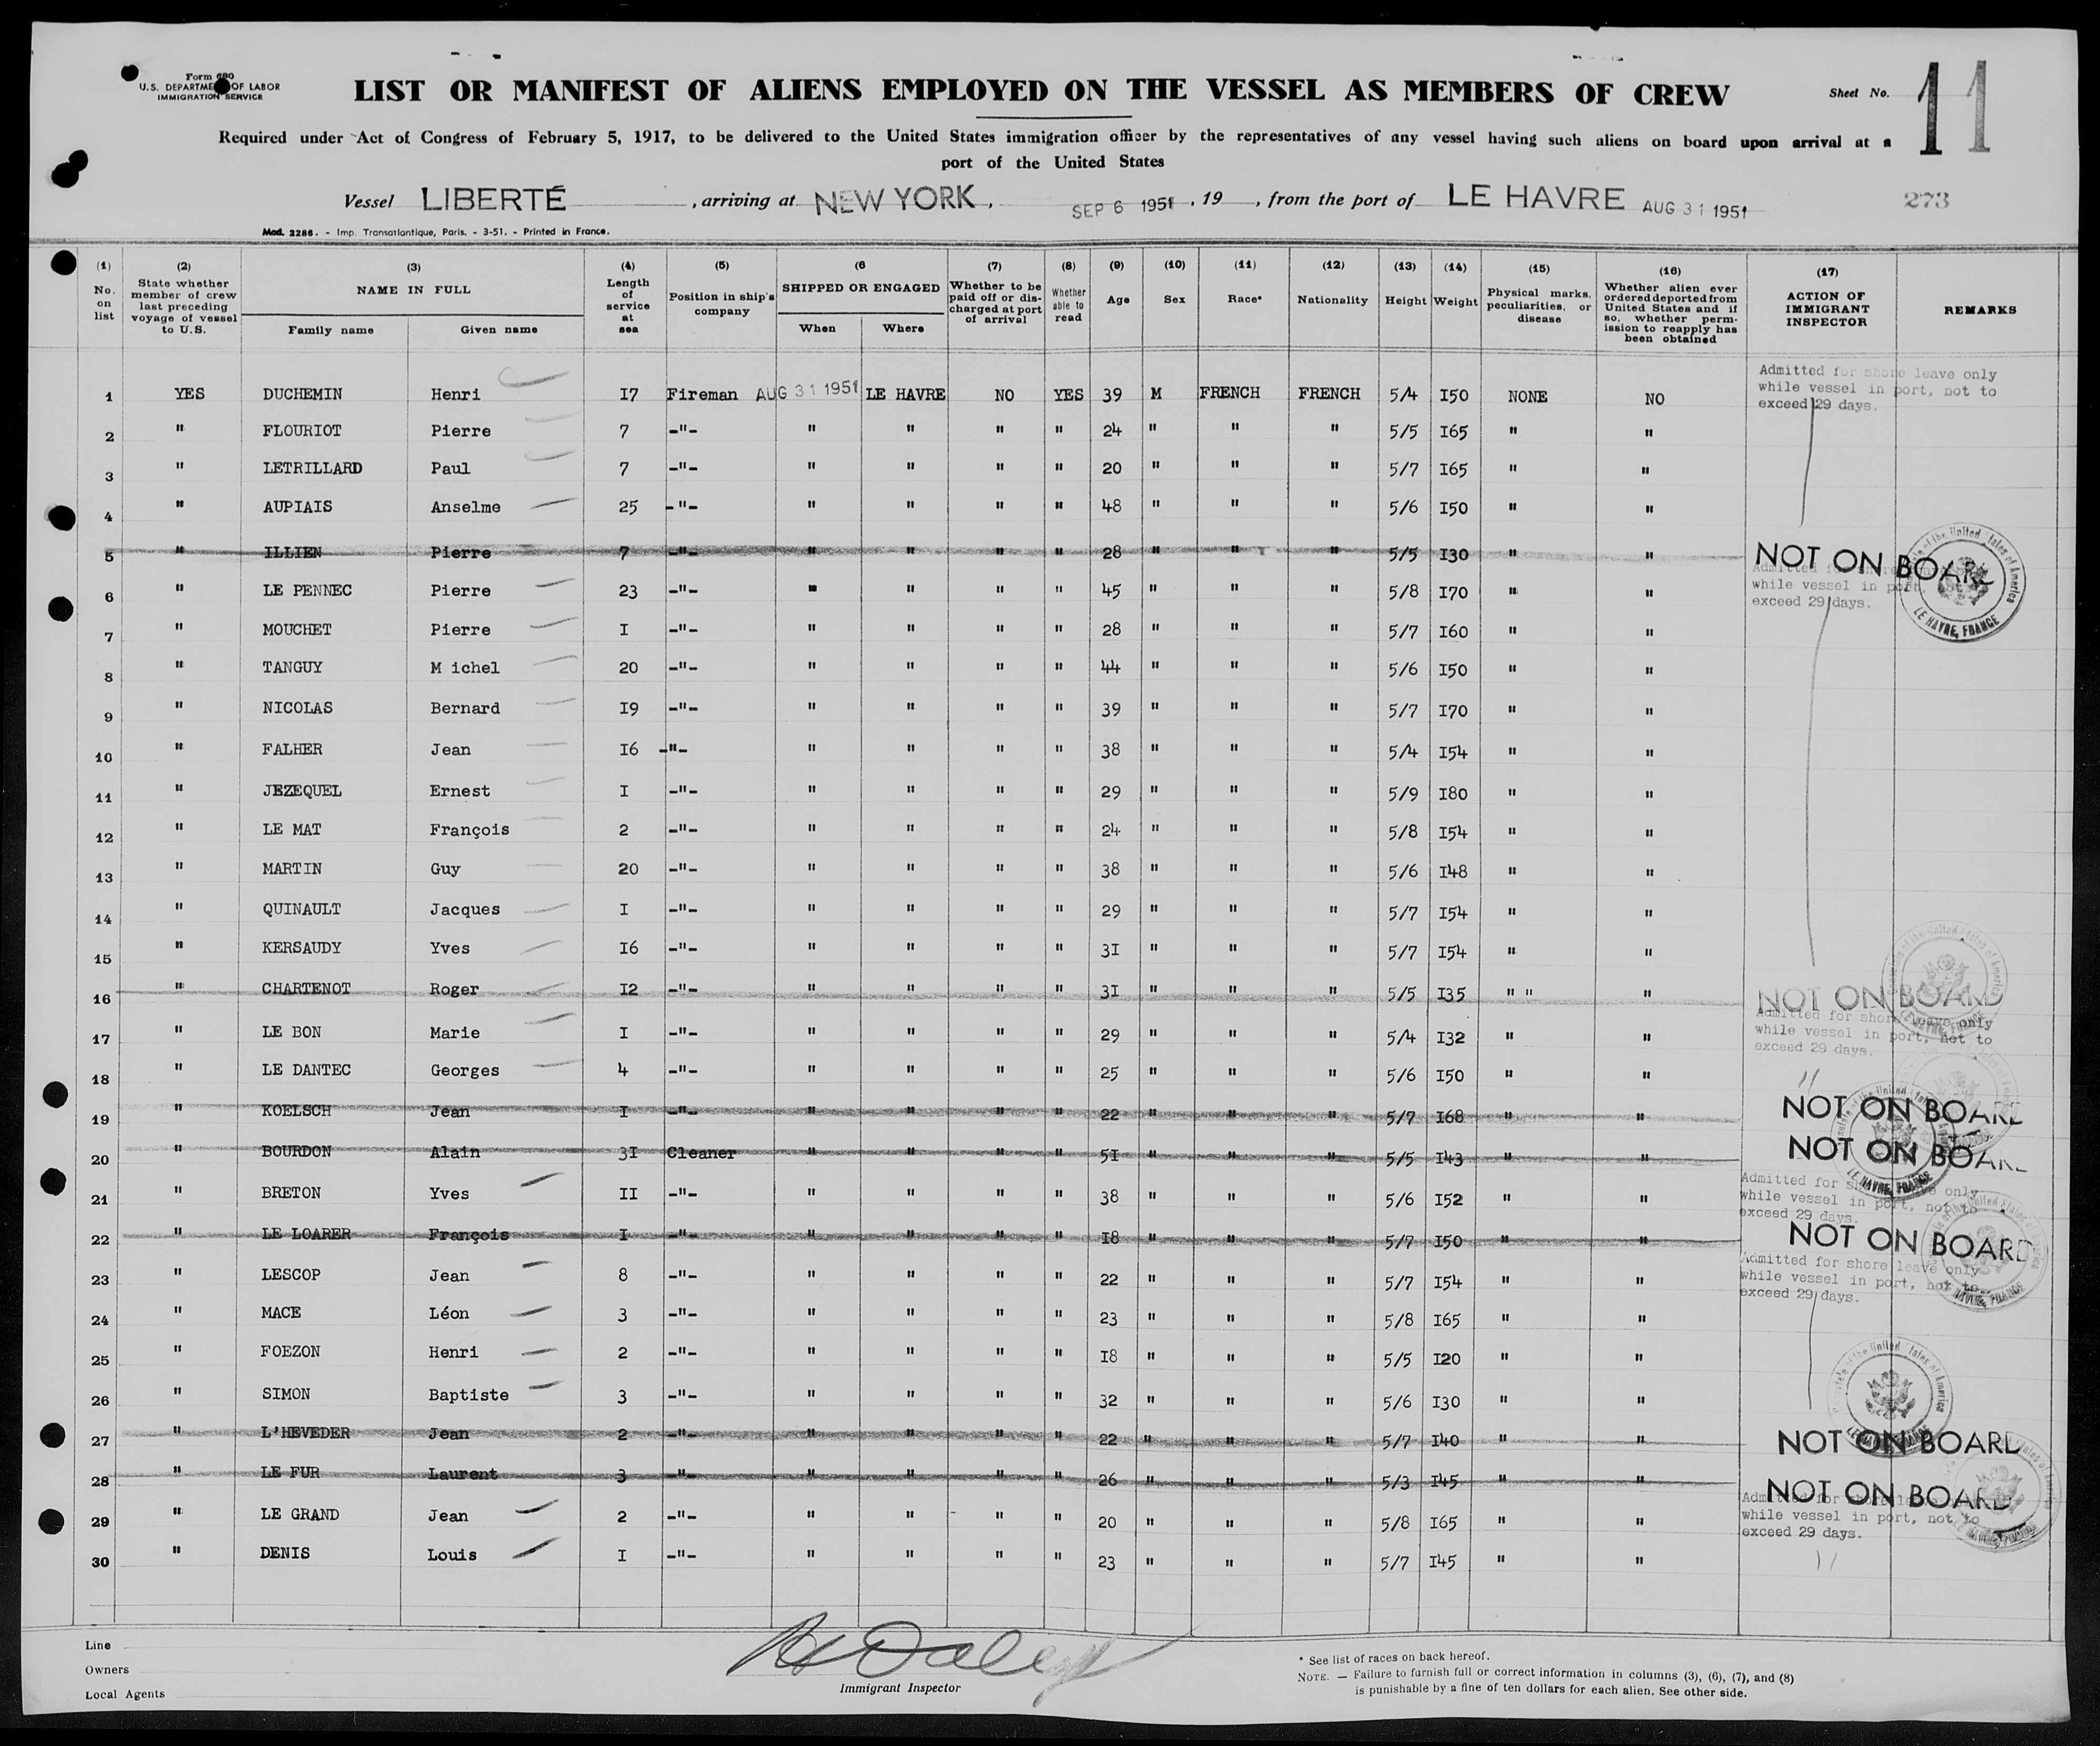 Form 680
U.S. DEPARTMENT OF LABOR
IMMIGRATION SERVICE
LIST OR MANIFEST OF ALIENS EMPLOYED ON THE VESSEL AS MEMBERS OF CREW
Sheet No. 11
Required under Act of Congress of February 5, 1917, to be delivered to the United States immigration officer by the representatives of any vessel having such aliens on board upon arrival at a
port of the United States
Vessel LIBERTÉ , arriving at NEW YORK , SEP 6 1951 , 19 , from the port of LE HAVRE AUG 31 1951
273
Mod. 2286. - Imp. Transatlantique, Paris. - 3-51. - Printed in France.
(1) No. on list
(2) State whether member of crew last preceding voyage of vessel to U.S.
(3) NAME IN FULL Family name Given name
(4) Length of service at sea
(5) Position in ship's company
(6 SHIPPED OR ENGAGED When Where
(7) Whether to be paid off or discharged at port of arrival
(8) Whether able to read
(9) Age
(10) Sex
(11) Race*
(12) Nationality
(13) Height
(14) Weight
(15) Physical marks, peculiarities, or disease
(16) Whether alien ever ordered deported from United States and if so, whether permission to reapply has been obtained
(17) ACTION OF IMMIGRANT INSPECTOR
REMARKS
1 YES DUCHEMIN Henri I7 Fireman AUG 31 1951 LE HAVRE NO YES 39 M FRENCH FRENCH 5/4 I50 NONE NO Admitted for shore leave only while vessel in port, not to exceed 29 days.
2 " FLOURIOT Pierre 7 -"- " " " " 24 " " " 5/5 I65 " "
3 " LETRILLARD Paul 7 -"- " " " " 20 " " " 5/7 I65 " "
4 " AUPIAIS Anselme 25 -"- " " " " 48 " " " 5/6 I50 " "
5 " ILLIEN Pierre 7 -"- " " " " 28 " " " 5/5 I30 " " NOT ON BOARD
6 " LE PENNEC Pierre 23 -"- " " " " 45 " " " 5/8 I70 " " Admitted while vessel in port exceed 29 days.
LE HAVRE, FRANCE
7 " MOUCHET Pierre I -"- " " " " 28 " " " 5/7 I60 " "
8 " TANGUY M ichel 20 -"- " " " " 44 " " " 5/6 I50 " "
9 " NICOLAS Bernard I9 -"- " " " " 39 " " " 5/7 I70 " "
10 " FALHER Jean I6 -"- " " " " 38 " " " 5/4 I54 " "
11 " JEZEQUEL Ernest I -"- " " " " 29 " " " 5/9 I80 " "
12 " LE MAT François 2 -"- " " " " 24 " " " 5/8 I54 " "
13 " MARTIN Guy 20 -"- " " " " 38 " " " 5/6 I48 " "
14 " QUINAULT Jacques I -"- " " " " 29 " " " 5/7 I54 " "
15 " KERSAUDY Yves I6 -"- " " " " 3I " " " 5/7 I54 " "
16 " CHARTENOT Roger I2 -"- " " " " 3I " " " 5/5 I35 " " " NOT ON BOARD
17 " LE BON Marie I -"- " " " " 29 " " " 5/4 I32 " " Admitted for shore leave only while vessel in port, not to exceed 29 days.
18 " LE DANTEC Georges 4 -"- " " " " 25 " " " 5/6 I50 " " "
19 " KOELSCH Jean I -"- " " " " 22 " " " 5/7 I68 " " NOT ON BOARD
20 " BOURDON Alain 3I Cleaner " " " " 5I " " " 5/5 I43 " " NOT ON BOARD
21 " BRETON Yves II -"- " " " " 38 " " " 5/6 I52 " " Admitted for only while vessel in port, not to exceed 29 days.
22 " LE LOARER François I -"- " " " " I8 " " " 5/7 I50 " " NOT ON BOARD
23 " LESCOP Jean 8 -"- " " " " 22 " " " 5/7 I54 " " Admitted for shore leave only while vessel in port, not to exceed 29 days.
24 " MACE Léon 3 -"- " " " " 23 " " " 5/8 I65 " "
25 " FOEZON Henri 2 -"- " " " " I8 " " " 5/5 I20 " "
26 " SIMON Baptiste 3 -"- " " " " 32 " " " 5/6 I30 " "
27 " L'HEVEDER Jean 2 -"- " " " " 22 " " " 5/7 I40 " " NOT ON BOARD
28 " LE FUR Laurent 3 -"- " " " " 26 " " " 5/3 I45 " " NOT ON BOARD
29 " LE GRAND Jean 2 -"- " " " " 20 " " " 5/8 I65 " " Admitted for while vessel in port, not to exceed 29 days.
30 " DENIS Louis I -"- " " " " 23 " " " 5/7 I45 " " "
Line
Owners
Local Agents
Immigrant Inspector
* See list of races on back hereof.
NOTE. — Failure to furnish full or correct information in columns (3), (6), (7), and (8)
is punishable by a fine of ten dollars for each alien. See other side.